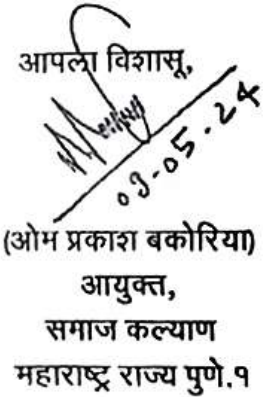 आपला विशासू,
09-05-24
(ओम प्रकाश बकोरिया)
आयुक्त,
समाज कल्याण
महाराष्ट्र राज्य पुणे.१